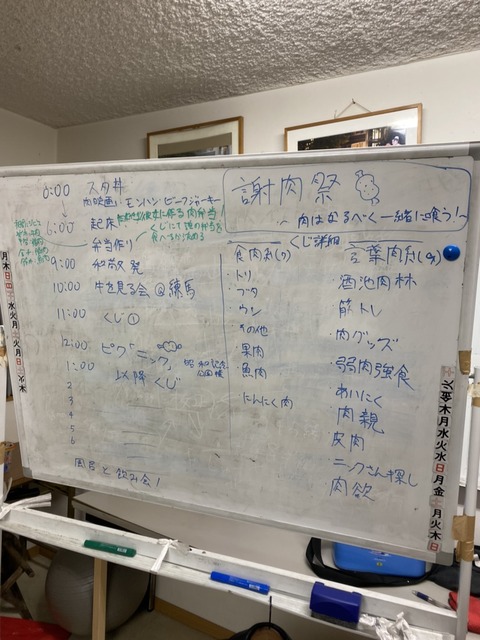 謝肉祭
~肉はなるべく一緒に喰う!~
0:00 スタ丼
肉映画:モンハン ビーフジャーキー
↓
6:00 起床
くじにて誰の弁当を
食べるか決める
弁当作り
9:00 出発
10:00 牛を見る会@練馬
11:00 くじ①
12:00 ピクニック 昭和記念公園
1:00 以降くじ
2
3
4
5
6
風呂と飲み会!
くじ詳細
食肉系(9)
・トリ
・ブタ
・ウシ
・その他
・果肉
・魚肉
・にんにく肉
言葉肉系(9)
・酒池肉林
・筋トレ
・肉グッズ
・弱肉強食
・あいにく
・肉親
・皮肉
・ニックさん探し
・肉欲